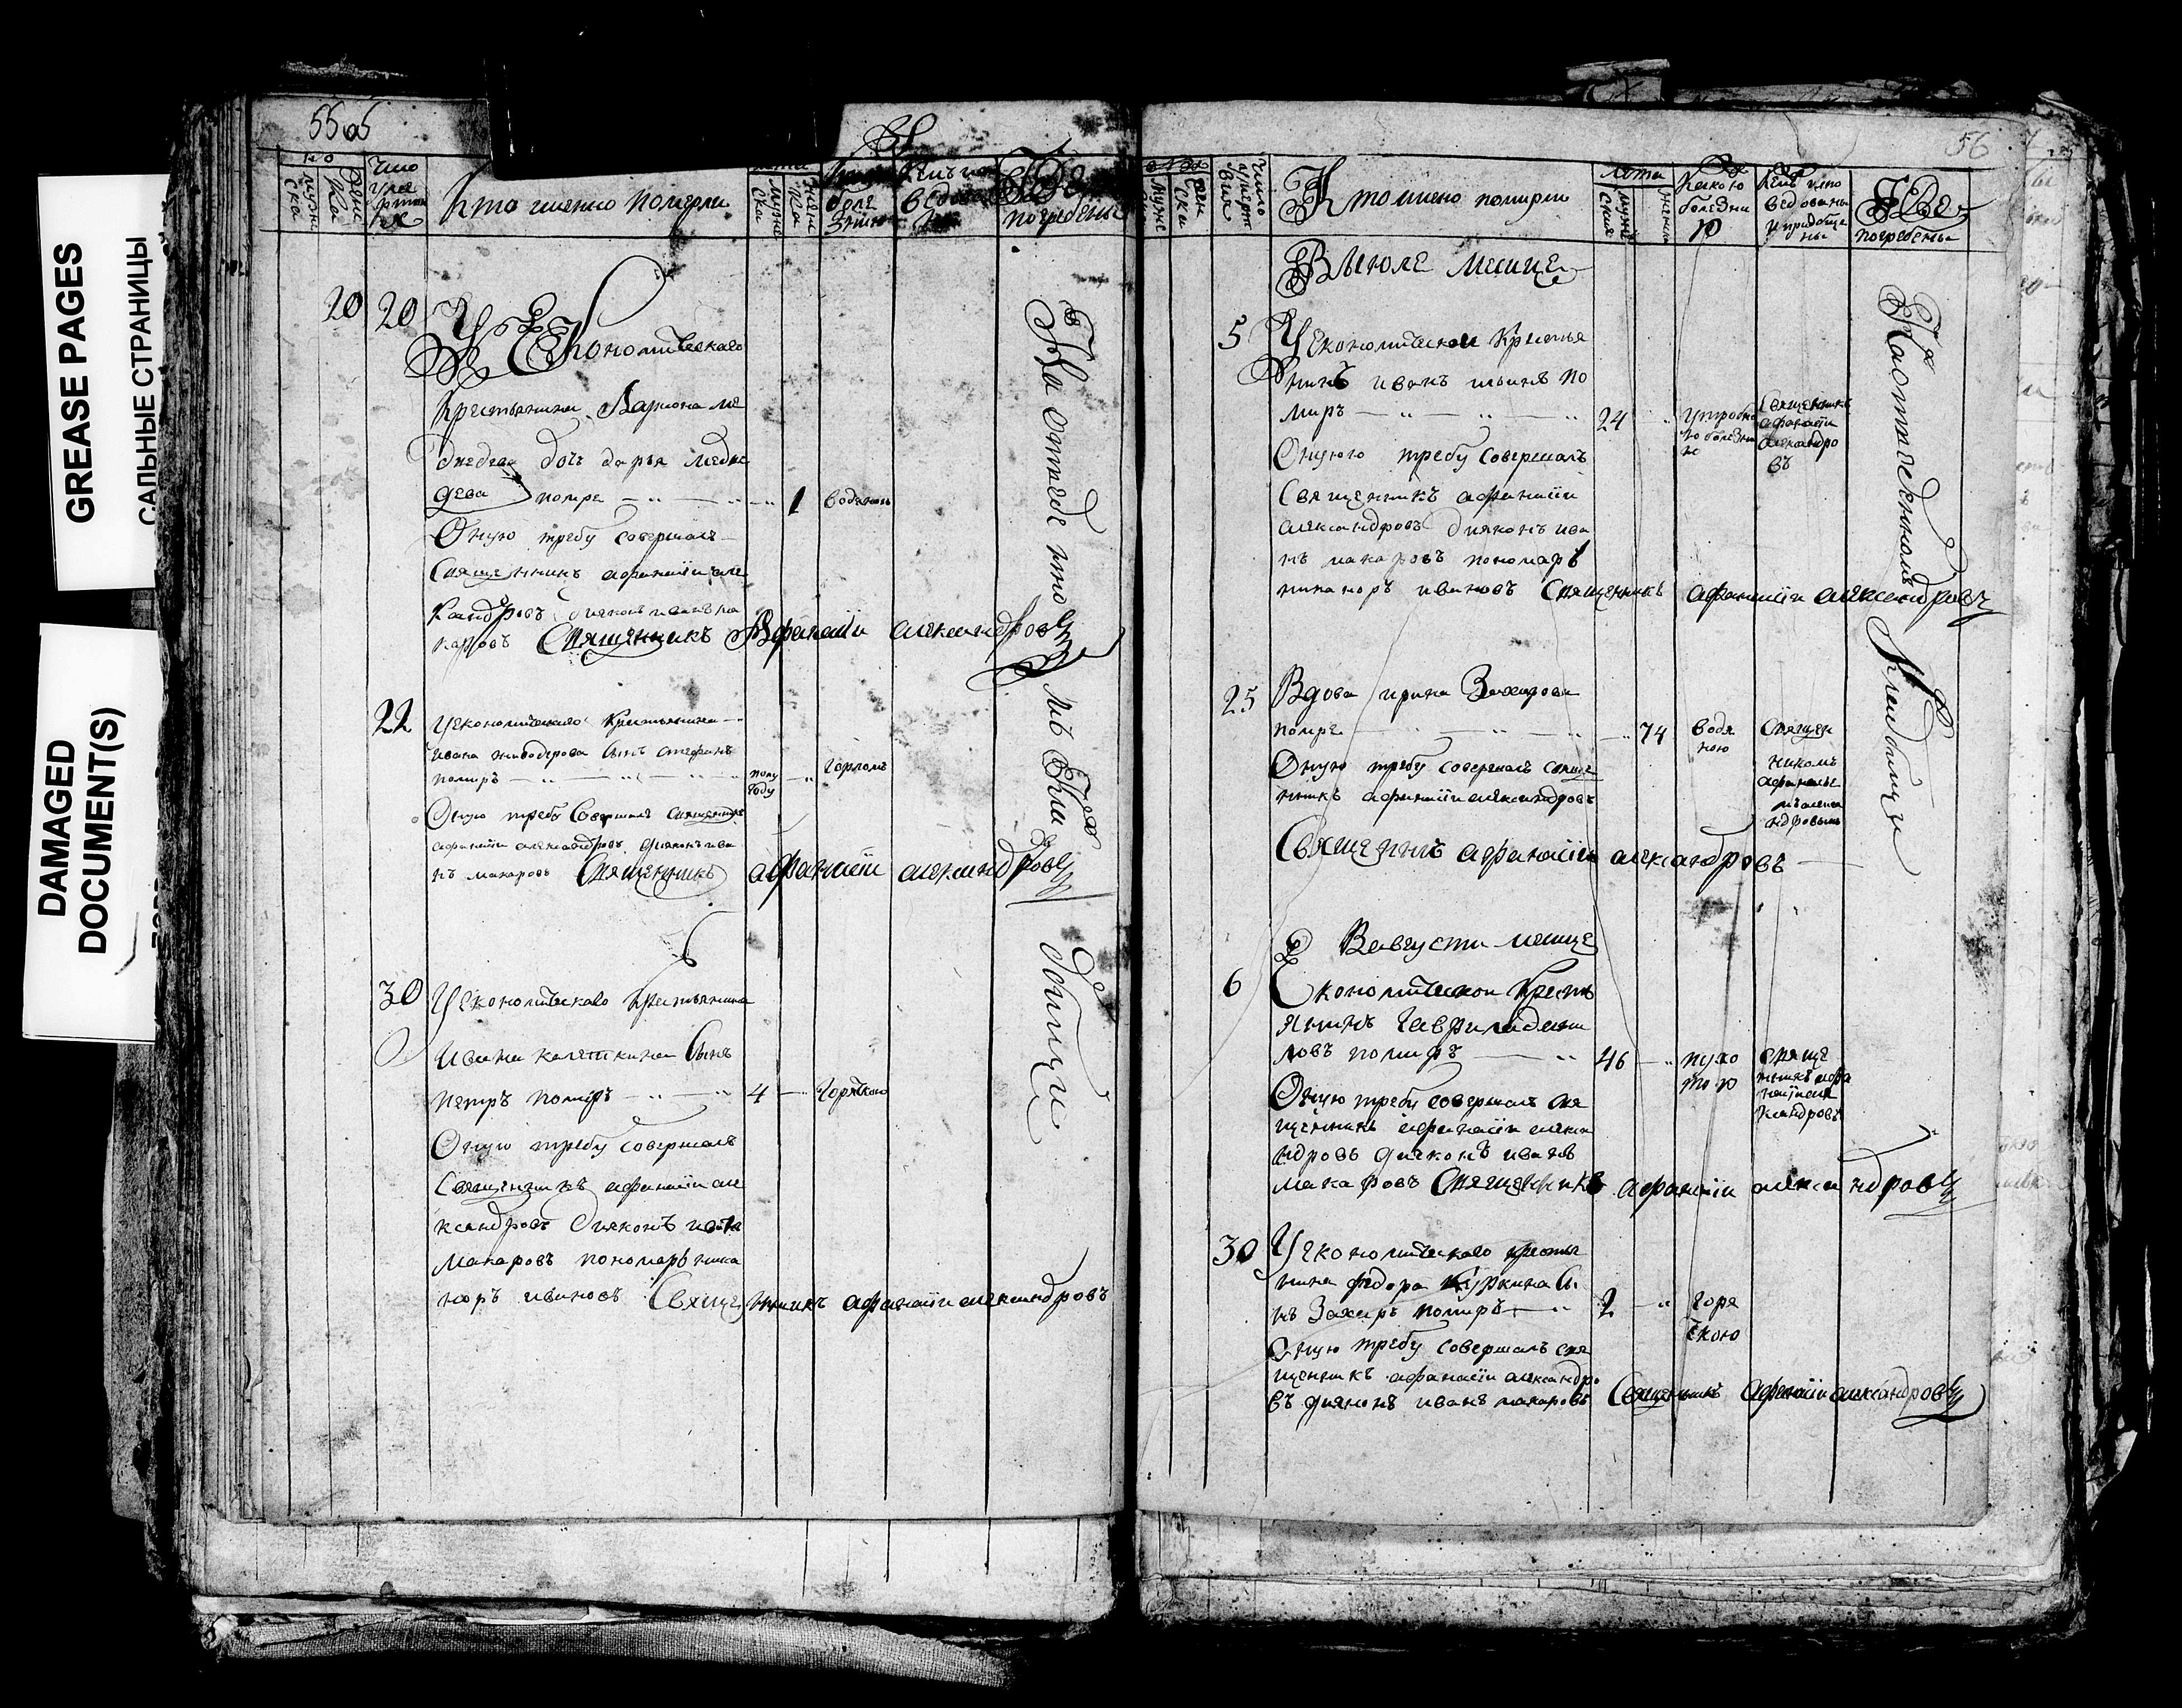 GREASE PAGES
САЛЬНЫЕ СТРАНИЦЫ
DAMAGED
DOCUMENT(S)
55об
Кто имено померли
погребены
20 20
У Економическаго
Крестьянина Лариона ме
дведева дочь дарья медве
дева помре 1 водяною
Оную требу совершалъ
Священникъ афанасїи але
ксандровъ дияконъ иванъ ма
каровъ Священникъ Афанасїи александровъ
22 У економическаго крестьянина
ивана живодерова сынъ стефанъ
помиръ полу году горломъ
Оную требу совершалъ священникъ
афанасїи александровъ дияконъ ива
нъ макаровъ Священникъ афанасїи александровъ
30 У економическаво крестьянина
Ивана каляткина сынъ
петръ помиръ 4 горячкою
Оную требу совершалъ
Священникъ афанасїи але
ксандровъ дияконъ иванъ
макаровъ пономарь ника
норъ ивановъ Священникъ афанасїи александровъ
На отведенномъ кладбищи
56
Кто имено помрли
лета
Какою болезни ю
Кемъ испо ведованы и приобще ны
Где погребены
В июле месице
5 У Економическои Крестья
нинъ иванъ ильинъ по
миръ 24 утробно ю болезни ю
Священникъ афанасїи александро въ
Оную требу совершалъ
Священникъ афанасїи
александровъ дияконъ ива
нъ макаровъ пономарь
никаноръ ивановъ Священникъ афанасїи александровъ
25 Вдова ирина Захарова
помре 74 водя ною
Священ никомъ афанасье мъ алекса ндровымъ
Оную требу совершалъ свяще
нникъ афанасїи александровъ
Священникъ афанасїи александровъ
В августи месице
6 Економическои Кресть
янинъ гаврила дани
ловъ помиръ 46
свяще нникъ афа насїи але ксандровъ
Оную требу совершалъ свя
щенникъ афанасїи алекса
ндровъ дияконъ иванъ
макаровъ Священникъ афанасїи александровъ
30 У економическаго крестья
нина федора Куркина сы
нъ Захаръ помиръ 2 горя чкою
Оную требу совершалъ свя
щенникъ афанасїи александро
въ дияконъ иванъ макаровъ Священникъ афанасїи александровъ
На отведенномъ кладбищи